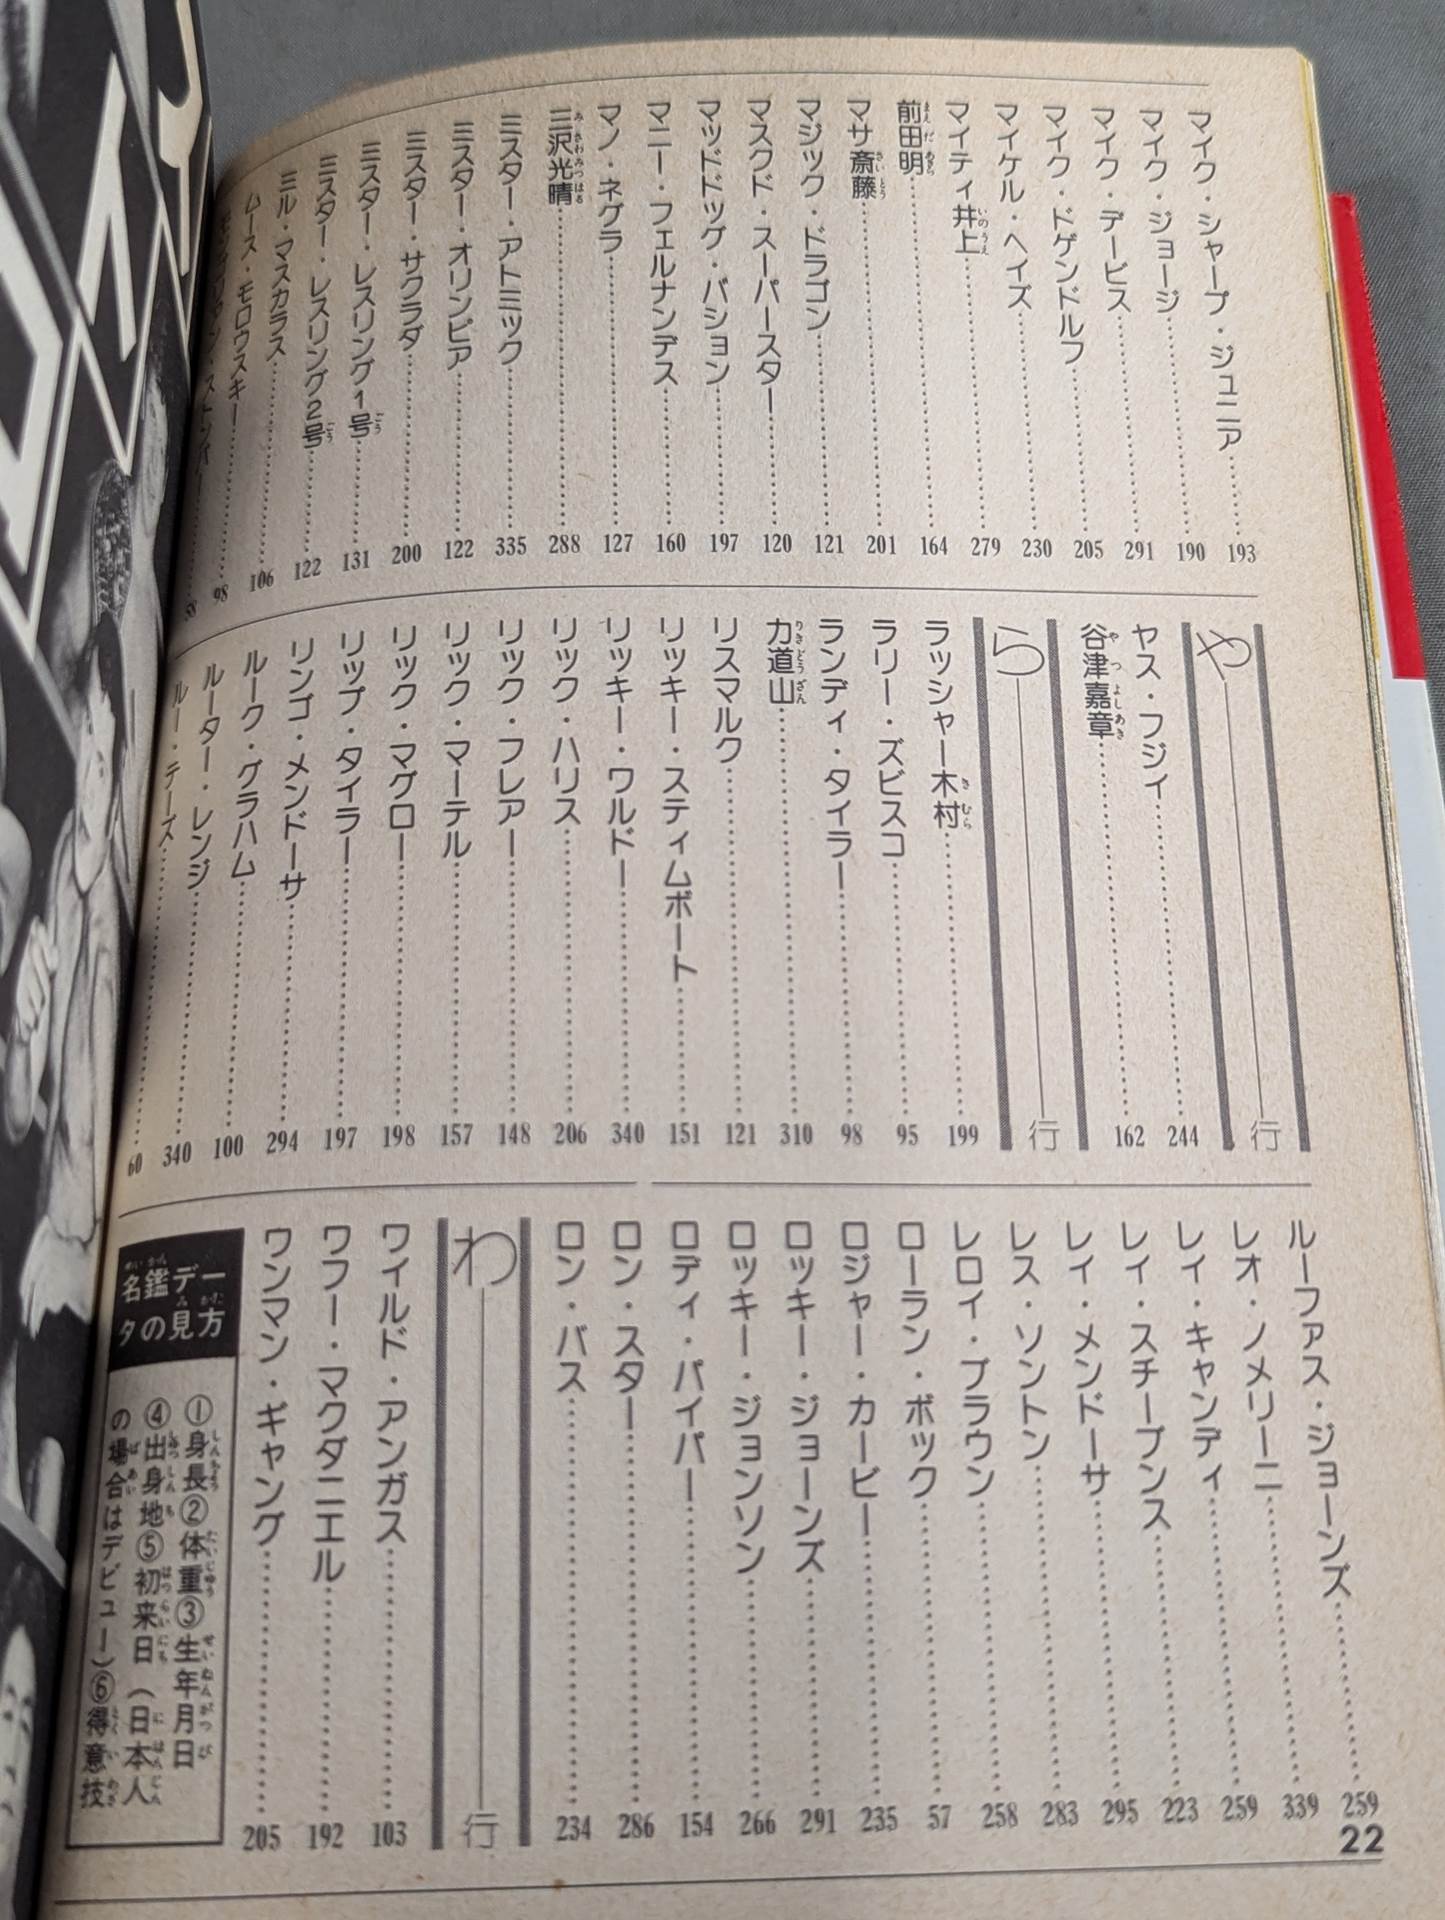 マイク・シャープ・ジュニア……193
マイク・ジョージ……190
マイク・デービス……291
マイク・ドゲンドルフ……205
マイケル・ヘイズ……230
マイティ井上……279
前田明……164
マサ斎藤……201
マジック・ドラゴン……121
マスクド・スーパースター……120
マッドドッグ・バション……197
マニー・フェルナンデス……160
マノ・ネグラ……127
三沢光晴……288
ミスター・アトミック……335
ミスター・オリンピア……122
ミスター・サクラダ……200
ミスター・レスリング1号……131
ミスター・レスリング2号……122
ミル・マスカラス……106
ムース・モロウスキー……98
や行
ヤス・フジイ……244
谷津嘉章……162
ら行
ラッシャー木村……199
ラリー・ズビスコ……95
ランディ・タイラー……98
力道山……310
リスマルク……121
リッキー・スティムボート……151
リッキー・ワルドー……340
リック・ハリス……206
リック・フレアー……148
リック・マーテル……157
リック・マグロー……198
リップ・タイラー……197
リンゴ・メンドーサ……294
ルーク・グラハム……100
ルーター・レンジ……340
ルー・テーズ……60
ルーファス・ジョーンズ……259
レオ・ノメリーニ……339
レイ・キャンディ……259
レイ・スチーブンス……223
レイ・メンドーサ……295
レス・ソントン……283
レロイ・ブラウン……258
ローラン・ボック……57
ロジャー・カービー……235
ロッキー・ジョーンズ……291
ロッキー・ジョンソン……266
ロディ・パイパー……154
ロン・スター……286
ロン・バス……234
わ行
ワイルド・アンガス……103
ワフー・マクダニエル……192
ワンマン・ギャング……205
名鑑デー
タの見方
①身長②体重③生年月日
④出身地⑤初来日（日本人
の場合はデビュー）⑥得意技
22